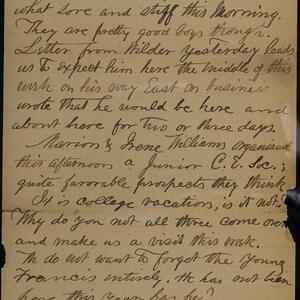 what sore and stiff this morning.
They are pretty good boys though.
Letter from Wilder yesterday leads
us to expect him here the middle of this
week on his way East on business
wrote that he would be here and
about here for two or three days.
Marion & Irene Williams organised
this afternoon a Junior C. E. Soc.;
quite favorable prospects they think
It is college vacation, is it not?
Why do you not all three come over
and make us a visit this week.
We do not want to forgot the young
Francis entirely. He has not been
here this year has he?